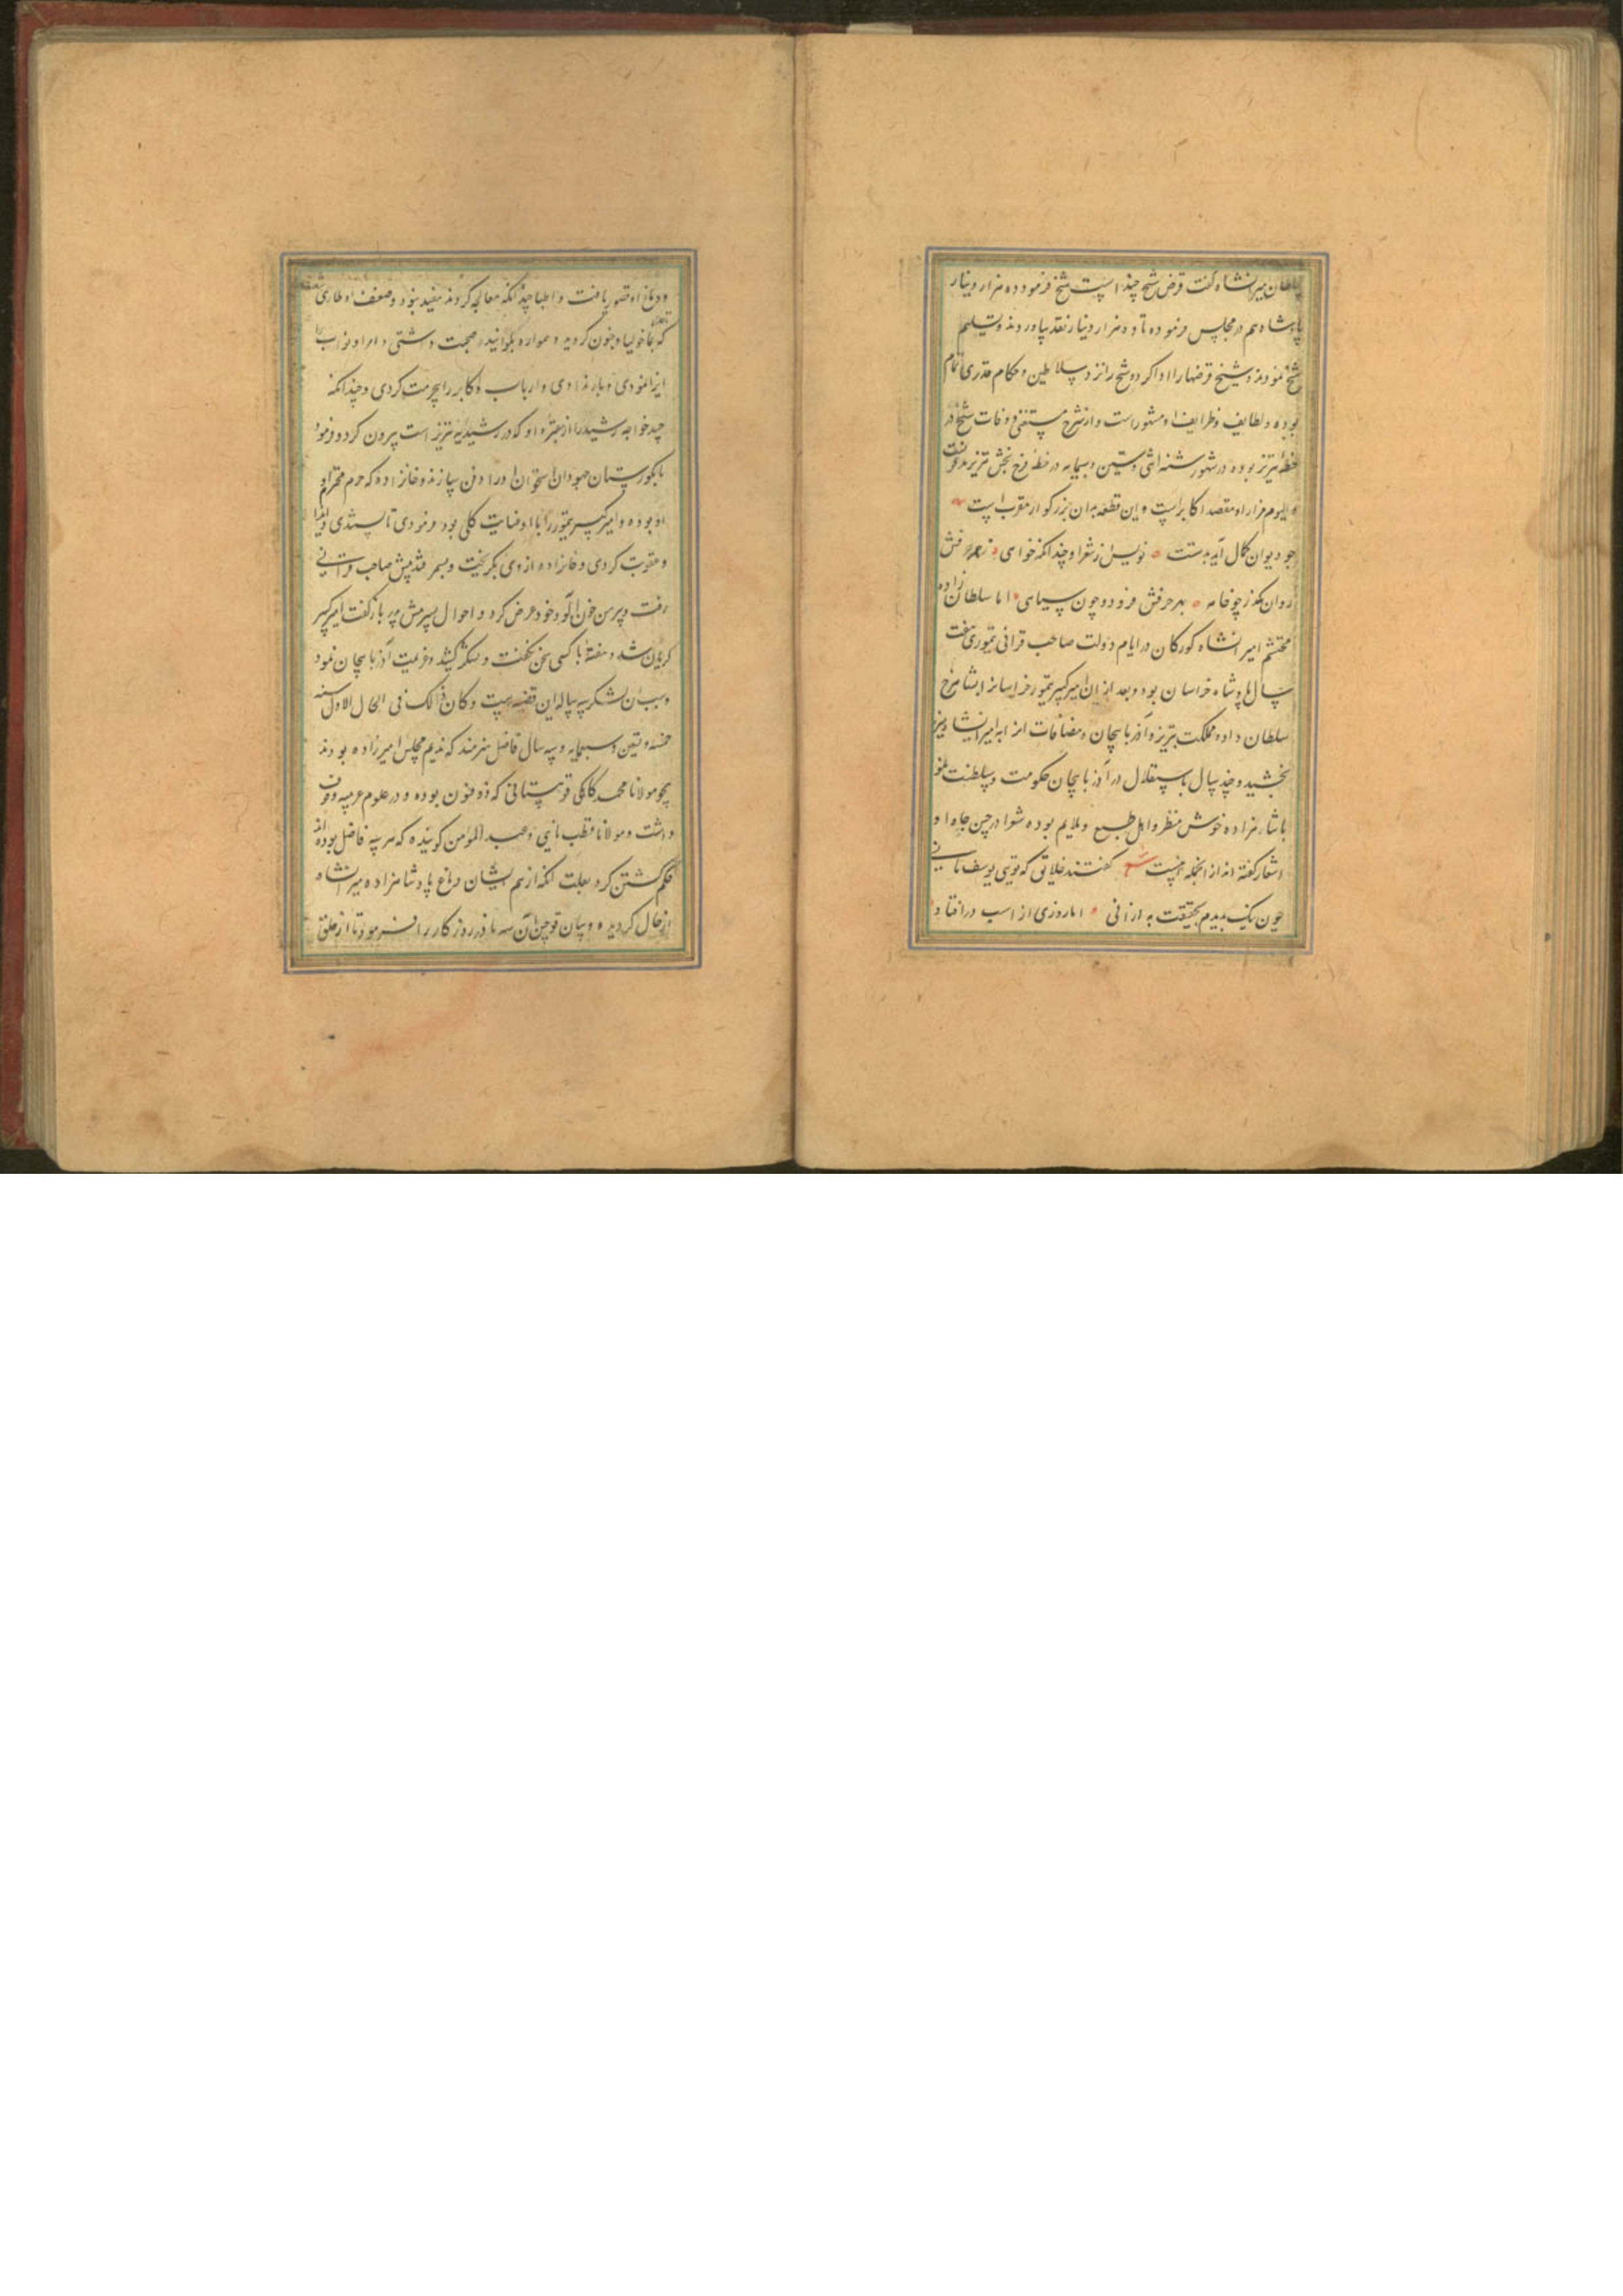 سلطان میرانشاه گفت قرض شیخ چند است شیخ فرمود ده هزار دینار
پادشاه هم در مجلس فرموده تا ده هزار دینار نقد بیاوردند و تسلیم
شیخ نمودند و شیخ قرضها را ادا کرد و شیخ را نزد سلاطین و حکام قدری تمام
بوده و لطایف و ظرایف او مشهور است و از شرح مستغنی و وفات شیخ در
خطه تبریز بوده در شهور سنه اثنی و تسعین و سبعمایه در خطه فرح بخش تبریز مدفونست
و الیوم مزار او مقصد اکابر است و این قطعه بدان بزرگوار منسوب است
چو دیوان کمال آید بدستت نویس از شعر او چندانکه خواهی ز هر حرفش
روان مگذر چو خامه بهر حرفش فرو رو چون سیاهی اما سلطان زاده
محتشم امیرانشاه کورکان در ایام دولت صاحب قرانی تیموری هفت
سال پادشاه خراسان بود و بعد از آن امیر کبیر تیمور خراسان را بشاهرخ
سلطان داد و مملکت تبریز و آذربایجان و مضافات آن را به امیرانشاه نیز
بخشید و چند سال باستقلال در آذربایجان حکومت و سلطنت نمود
پادشاهزاده خوش منظر و اهل طبع و ملایم بوده شعرا در حسن جاه او
اشعار گفته اند از انجمله اینست گفتند خلایق که تویی یوسف ثانی
چون نیک بدیدم بحقیقت به از آنی اما روزی از اسب در افتاد و
و دماغ او قصور یافت و اطبا چندانکه معالجه کردند مفید نبود و ضعف او طاری
که بماخولیا و جنون کردید و همواره صحبت داشتی و امرا و نواب را
ایذا نمودی و بار ندادی و ارباب و اکابر را بیحرمت کردی و چندانکه
جسد خواجه رشید را از مقبره او که در رشیدیه تبریز است بیرون کرد و فرمود
تا بکورستان جهودان استخوان او را دفن سازند و خانزاده که حرم محترم او
او بوده و امیر کبیر تیمور را با او عنایت کلی بود فرمودی تا بستندی و ایذا
و عقوبت کردی و خانزاده از وی بگریخت و بسمرقند پیش صاحب قرانی
رفت و پیرهن خون آلود خود عرض کرد و احوال پسر پیش پدر باز گفت امیر کبیر
گریان شد و هفته با کسی سخن نگفت و لشکر کشید و عزیمت آذربایجان نمود
و سبب آن لشکر سه ساله این قضیه است و کان ذالک فی الحال الاول سنه
خمسه و تسعین و سبعمایه و سه سال فاضل هنرمند که ندیم مجلس امیرزاده بودند
همچو مولانا محمد کاخکی قهستانی که ذو فنون بوده و در علوم عربیه وقوف
داشت و مولانا قطب نایی و عبدالمؤمن گوینده که هر سه فاضل بوده اند
حکم کشتن کرد بعلت آنکه از هم ایشان دماغ پادشاهزاده میرانشاه
از حال کردیده و بیان قوچین آن سه نادر روزکار را فرمود تا از حلق